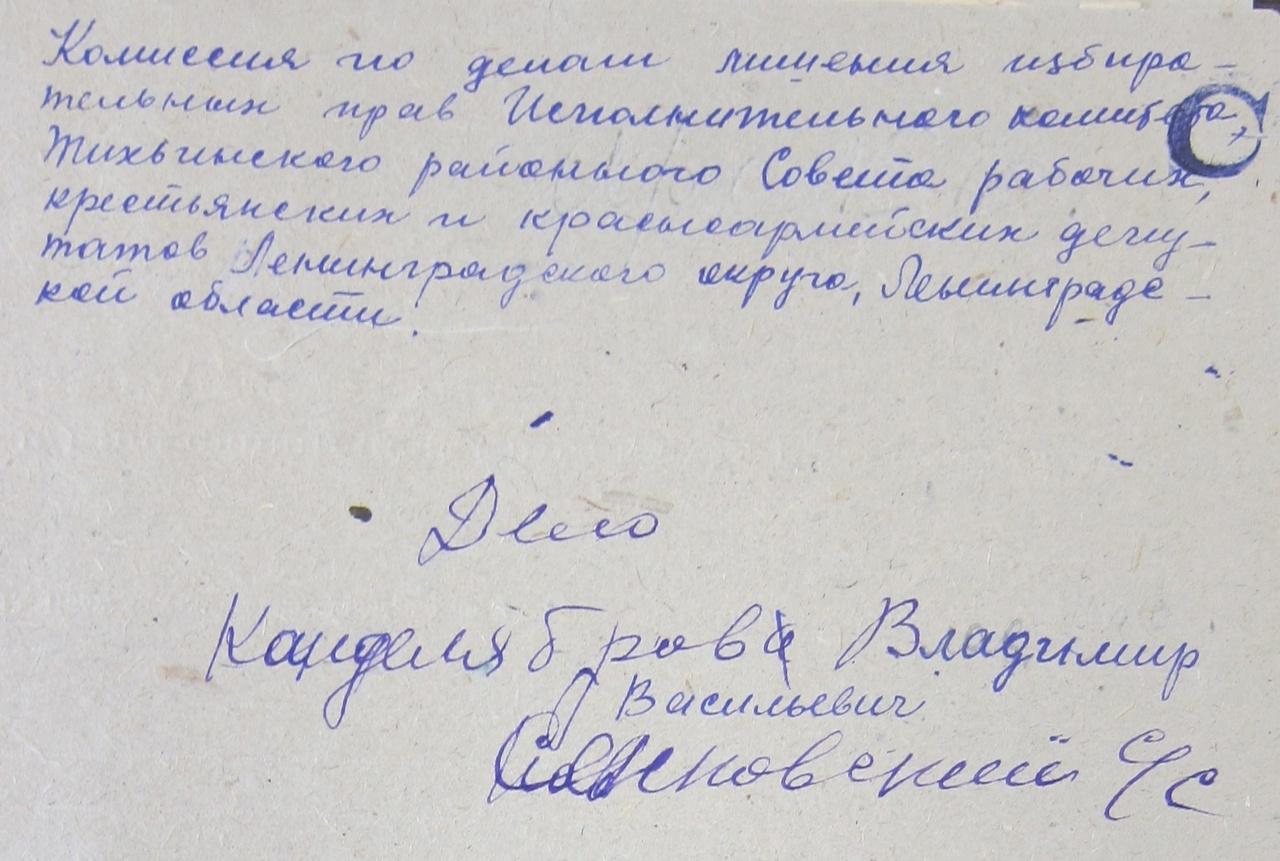 Комиссия по делам лишения избира-
тельных прав Исполнительного комитета
Тихвинского районного Совета рабочих,
крестьянских и красноармейских депу-
татов Ленинградского округа, Ленинградс-
кой области.
С
Дело
Канделябров Владимир
Васильевич
с/с